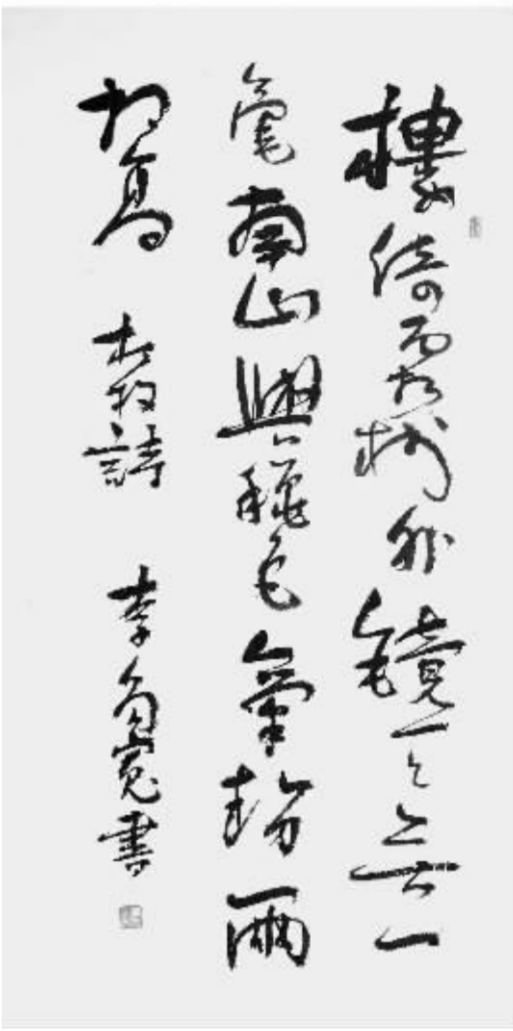 樓倚霜樹外鏡天無一
毫南山與穐色氣勢兩
相高 杜牧詩 李 書